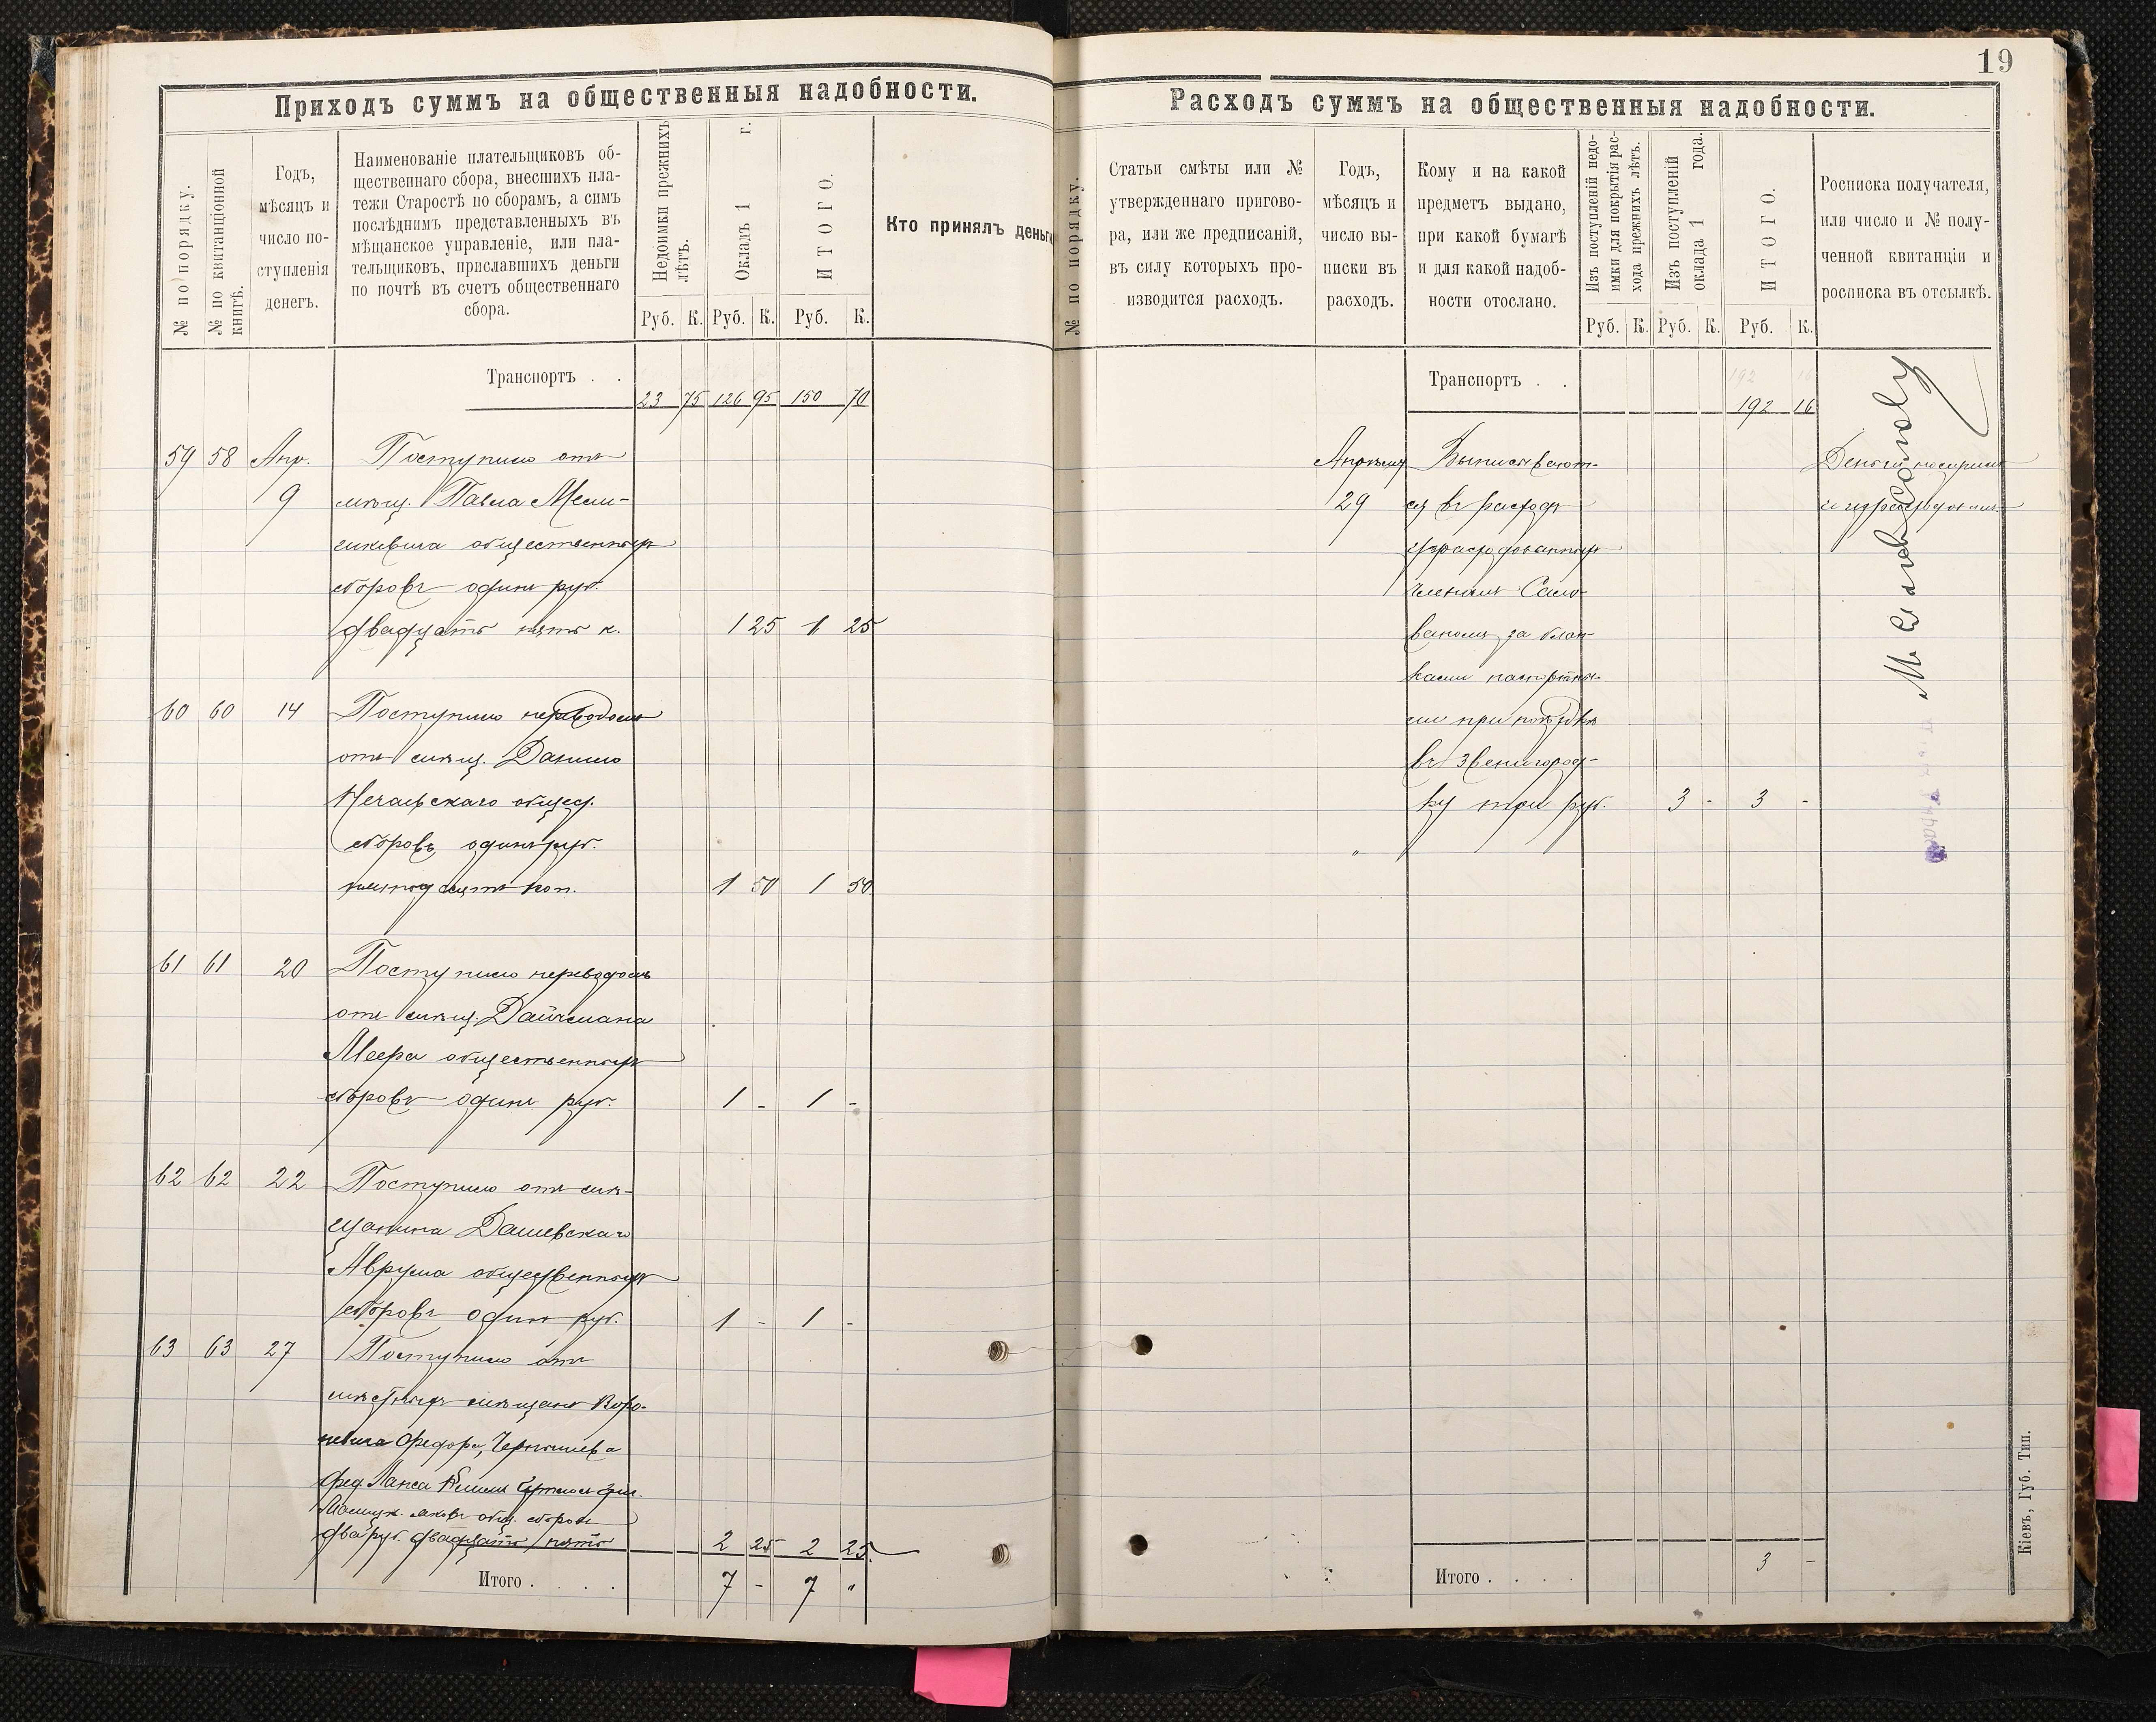 Приходъ суммъ на общественныя надобности.
№ по порядку.
№ по квитанціонной
книгѣ.
Годъ,
мѣсяцъ и
число по-
ступленія
денегъ.
Наименованіе плательщиковъ об-
щественнаго сбора, внесшихъ пла-
тежи Старостѣ по сборамъ, а симъ
послѣднимъ представленныхъ въ
мѣщанское управленіе, или пла-
тельщиковъ, приславшихъ деньги
по почтѣ въ счетъ общественнаго
сбора.
Недоимки прежнихъ
лѣтъ.
Окладъ 1 г.
ИТОГО.
Кто принялъ деньги
Руб. К. Руб. К. Руб. К.
Транспортъ . .
23 75 126 95 150 70
59 58 Апр. Поступило отъ
9 мѣщ. Павла
общественныхъ
сборовъ одинъ руб.
двадцать пять к. 1 25 1 25
60 60 14 Поступило переводомъ
отъ мѣщ. Данило
Нечаевскаго общес.
сборовъ одинъ руб.
пятьдесятъ коп. 1 50 1 50
61 61 20 Поступило переводомъ
отъ мѣщ. Дайчмана
Меера общественныхъ
сборовъ одинъ руб. 1 - 1 -
62 62 22 Поступило отъ мѣ-
щанина Дашевскаго
Аврума общественныхъ
сборовъ один руб. 1 - 1 -
63 63 27 Поступило отъ
мѣстныхъ мѣщанъ Воро-
невича Федора, Чернышева
Фед.
общ. сборовъ
два руб. двадцать пять 2 25 2 25
Итого . . . . 7 - 7 "
19
Расходъ суммъ на общественныя надобности.
№ по порядку.
Статьи смѣты или №
утвержденнаго пригово-
ра, или же предписаній,
въ силу которыхъ про-
изводится расходъ.
Годъ,
мѣсяцъ и
число вы-
писки въ
расходъ.
Кому и на какой
предметъ выдано,
при какой бумагѣ
и для какой надоб-
ности отослано.
Изъ поступленій недо-
имки для покрытія рас-
хода прежнихъ лѣтъ.
Изъ поступленій
оклада 1 года.
ИТОГО.
Росписка получателя,
или число и № полу-
ченной квитанціи и
росписка въ отсылкѣ.
Руб. К. Руб. К. Руб. К.
Транспортъ . .
192 16
Апрѣля Выписывают-
29 ся въ расходъ
израсходованныя
членомъ Само-
за блан-
ками паспортны-
ми при поѣздкѣ
въ Звенигород-
ку три руб. 3 - 3 -
Деньги
Итого . . . . 3 -
Кіевъ, Губ. Тип.